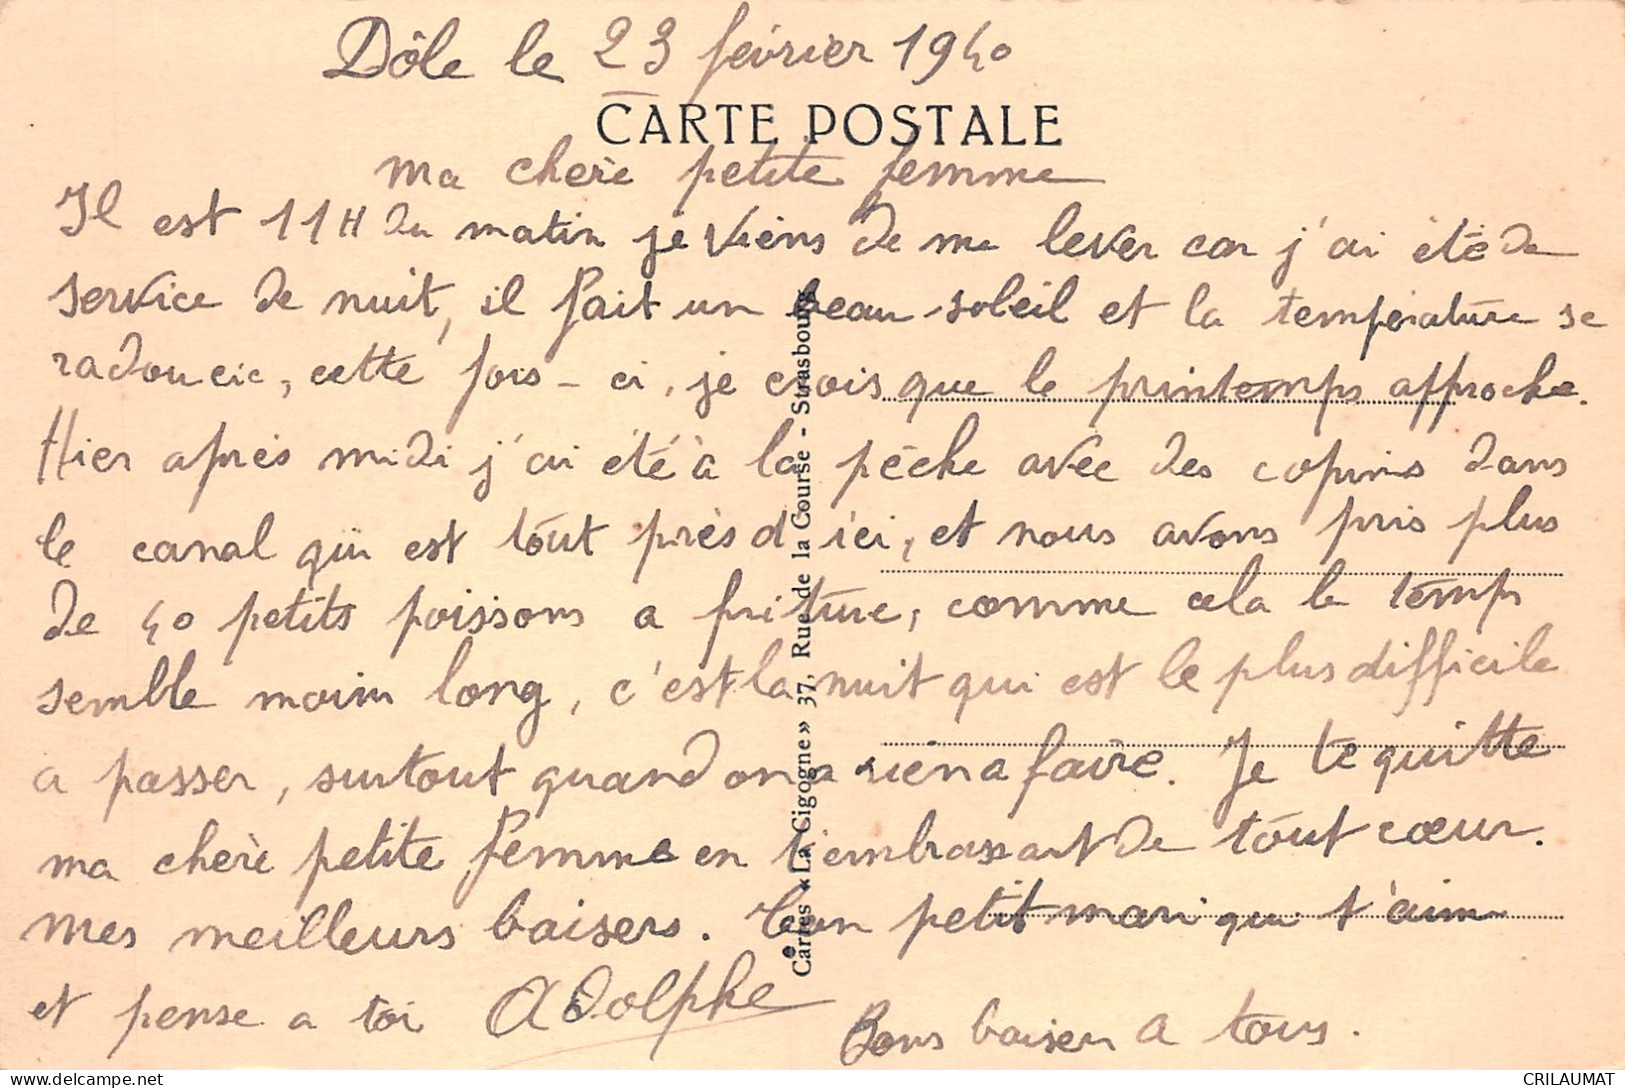 Dôle le 23 février 1940
CARTE POSTALE
ma chère petite femme
Il est 11H du matin je viens de me lever car j'ai été de
service de nuit, il fait un beau soleil et la température se
radoucie, cette fois-ci, je crois que le printemps approche.
Hier après midi j'ai été à la pêche avec des copins dans
le canal qui est tout près d'ici, et nous avons pris plus
de 40 petits poissons a friture, comme cela le temps
semble moins long, c'est la nuit qui est le plus difficile
a passer, surtout quand on a rien a faire. Je te quitte
ma chère petite femme en t'embrassant de tout cœur.
Mes meilleurs baisers. Ton petit mari qui t'aime
et pense a toi Adolphe
Bons baisers a tous.
Cartes «La Cigogne» 37, Rue de la Course - Strasbourg
CRILAUMAT